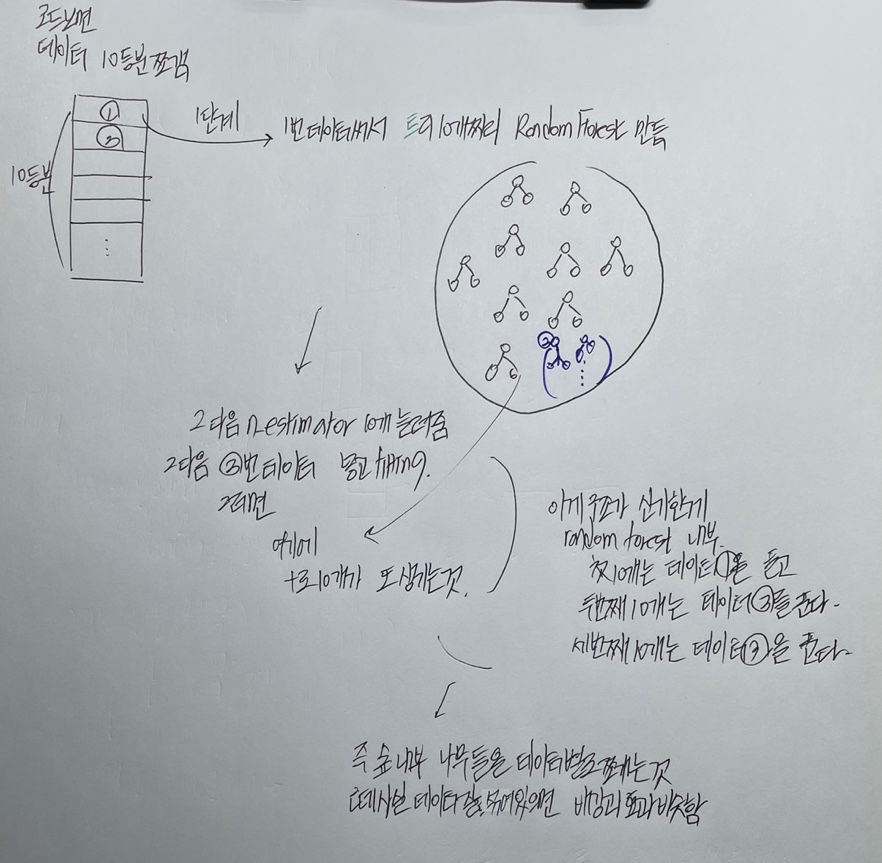 코드보면
데이터 10등분 쪼갬
①
②
10등분
1단계
1번 데이터써서 트리 10개짜리 Random Forest 만듦
②
그 다음 n_estimator 10개 늘려줌
그 다음 ②번 데이터 넣고 fitting.
그러면
여기에
+로 10개가 또 생기는것.
이게 구조가 신기한게
random forest 내부
첫 10개는 데이터①을 풀고
두번째 10개는 데이터②를 푼다.
세번째 10개는 데이터③을 푼다.
즉 숲 내부 나무들을 데이터별로 쪼개는것
근데 사실 데이터 잘 섞여있으면 배깅과 효과 비슷함